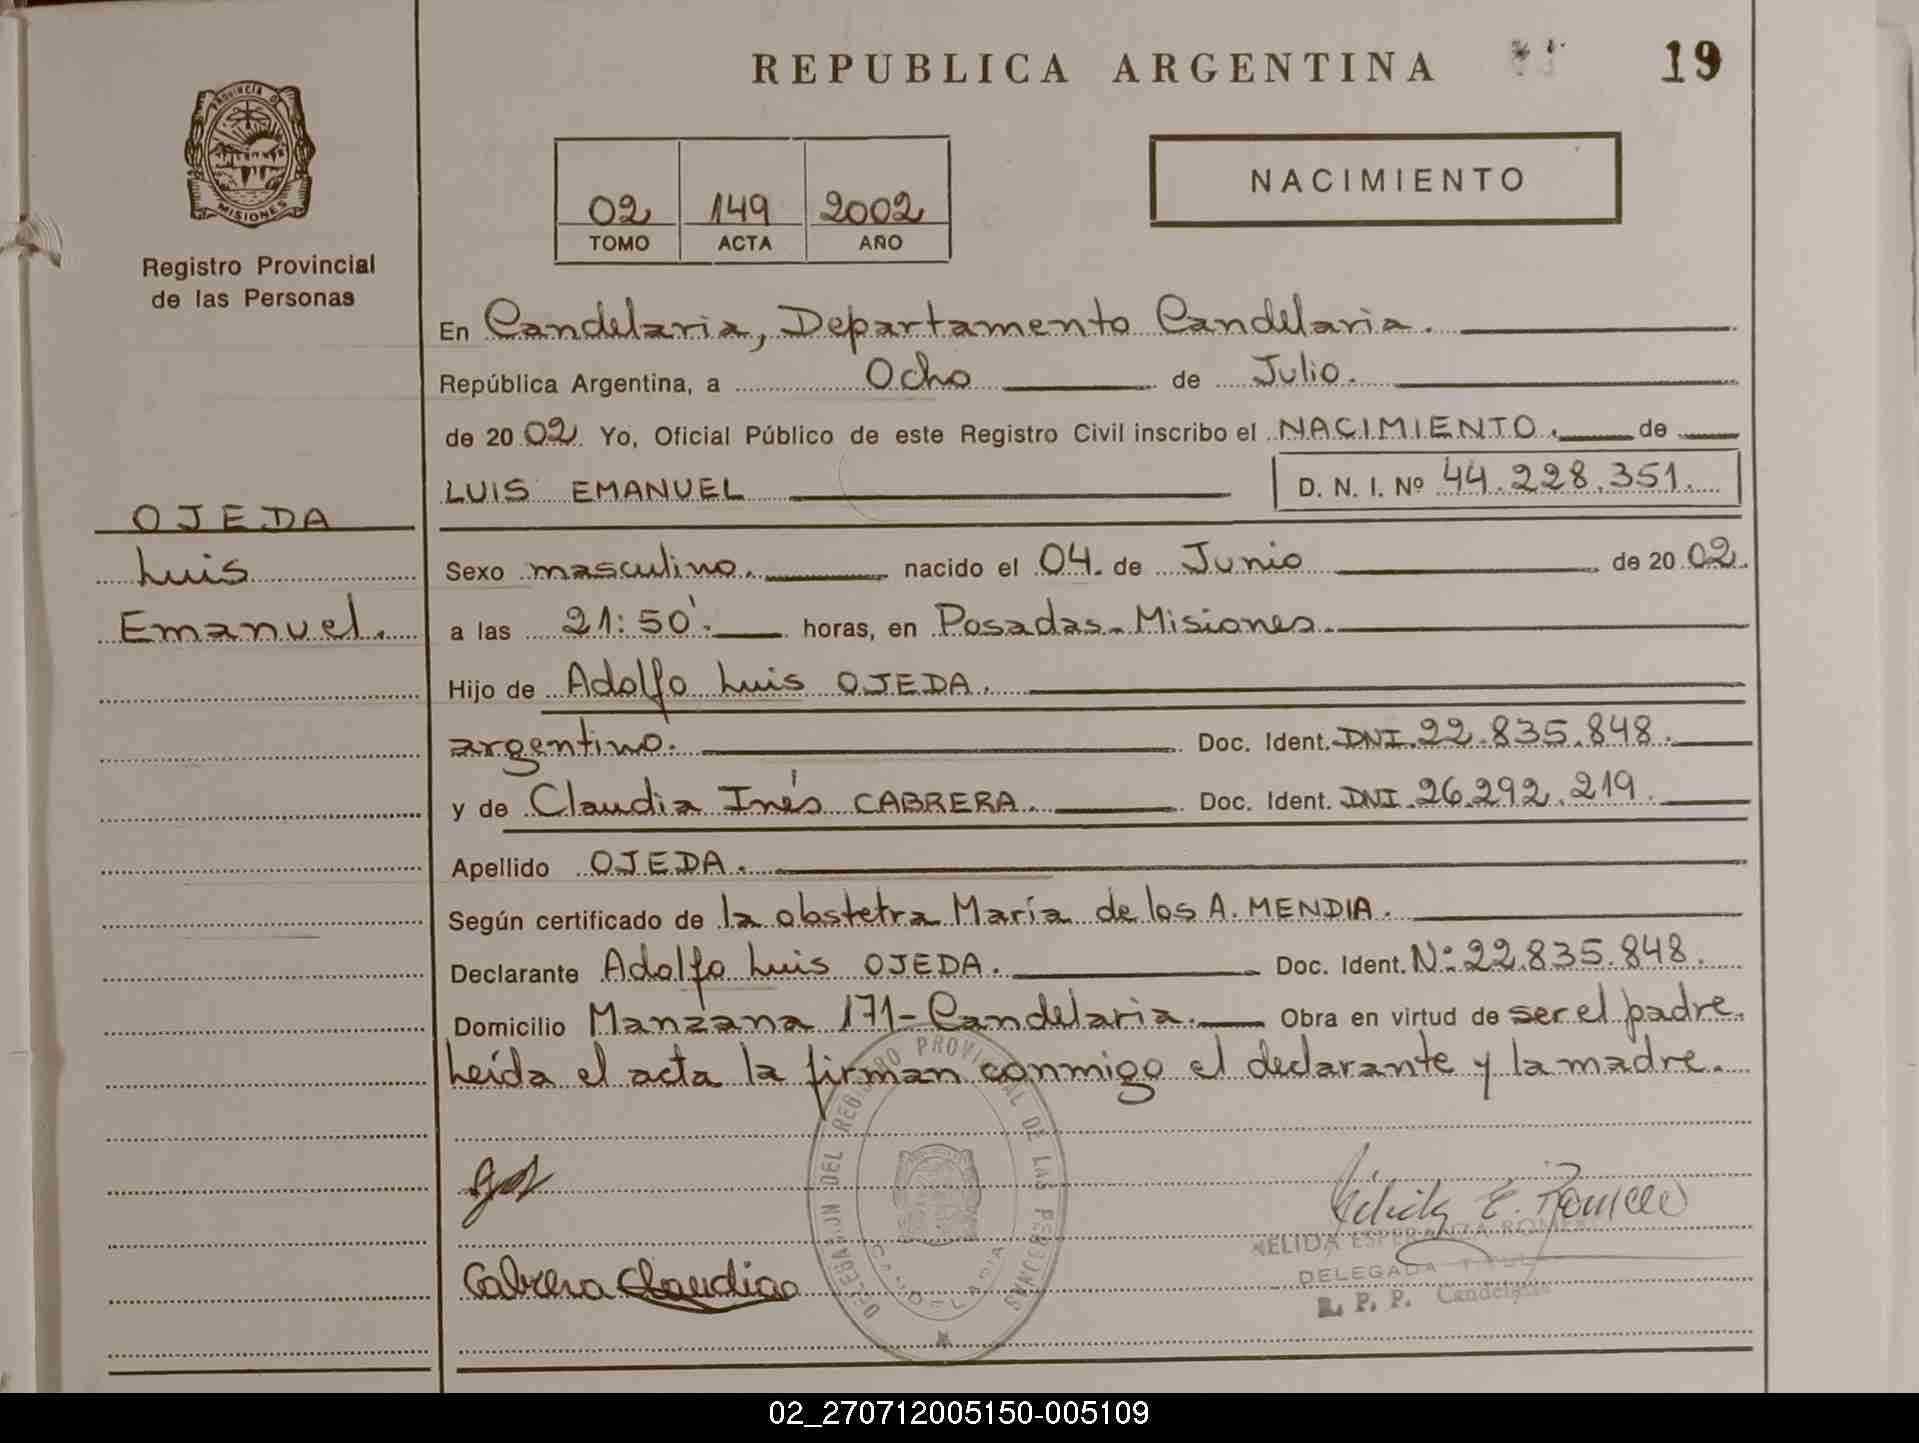 REPUBLICA ARGENTINA
19
PROVINCIA DE
MISIONES
Registro Provincial
de las Personas
02 149 2002
TOMO ACTA AÑO
NACIMIENTO
En Candelaria, Departamento Candelaria.
República Argentina, a Ocho de Julio.
de 2002 Yo, Oficial Público de este Registro Civil inscribo el NACIMIENTO. de
LUIS EMANUEL D. N. I. Nº 44.228.351.
OJEDA
Luis
Emanuel.
Sexo masculino. nacido el 04. de Junio de 2002.
a las 21:50'. horas, en Posadas-Misiones.
Hijo de Adolfo Luis OJEDA.
argentino. Doc. Ident. DNI.22.835.848.
y de Claudia Inés CABRERA. Doc. Ident. DNI.26.292.219.
Apellido OJEDA.
Según certificado de la obstetra María de los A. MENDIA.
Declarante Adolfo Luis OJEDA. Doc. Ident. Nº 22.835.848.
Domicilio Manzana 171-Candelaria. Obra en virtud de ser el padre.
Leída el acta la firman conmigo el declarante y la madre.
DELEGACION DEL REGISTRO PROVINCIAL DE LAS PERSONAS
CANDELARIA
Cabrera Claudia
Nélida E. Romero
NELIDA ESPERANZA ROMERO
DELEGADA TITULAR
R. P. P. Candelaria
02_270712005150-005109